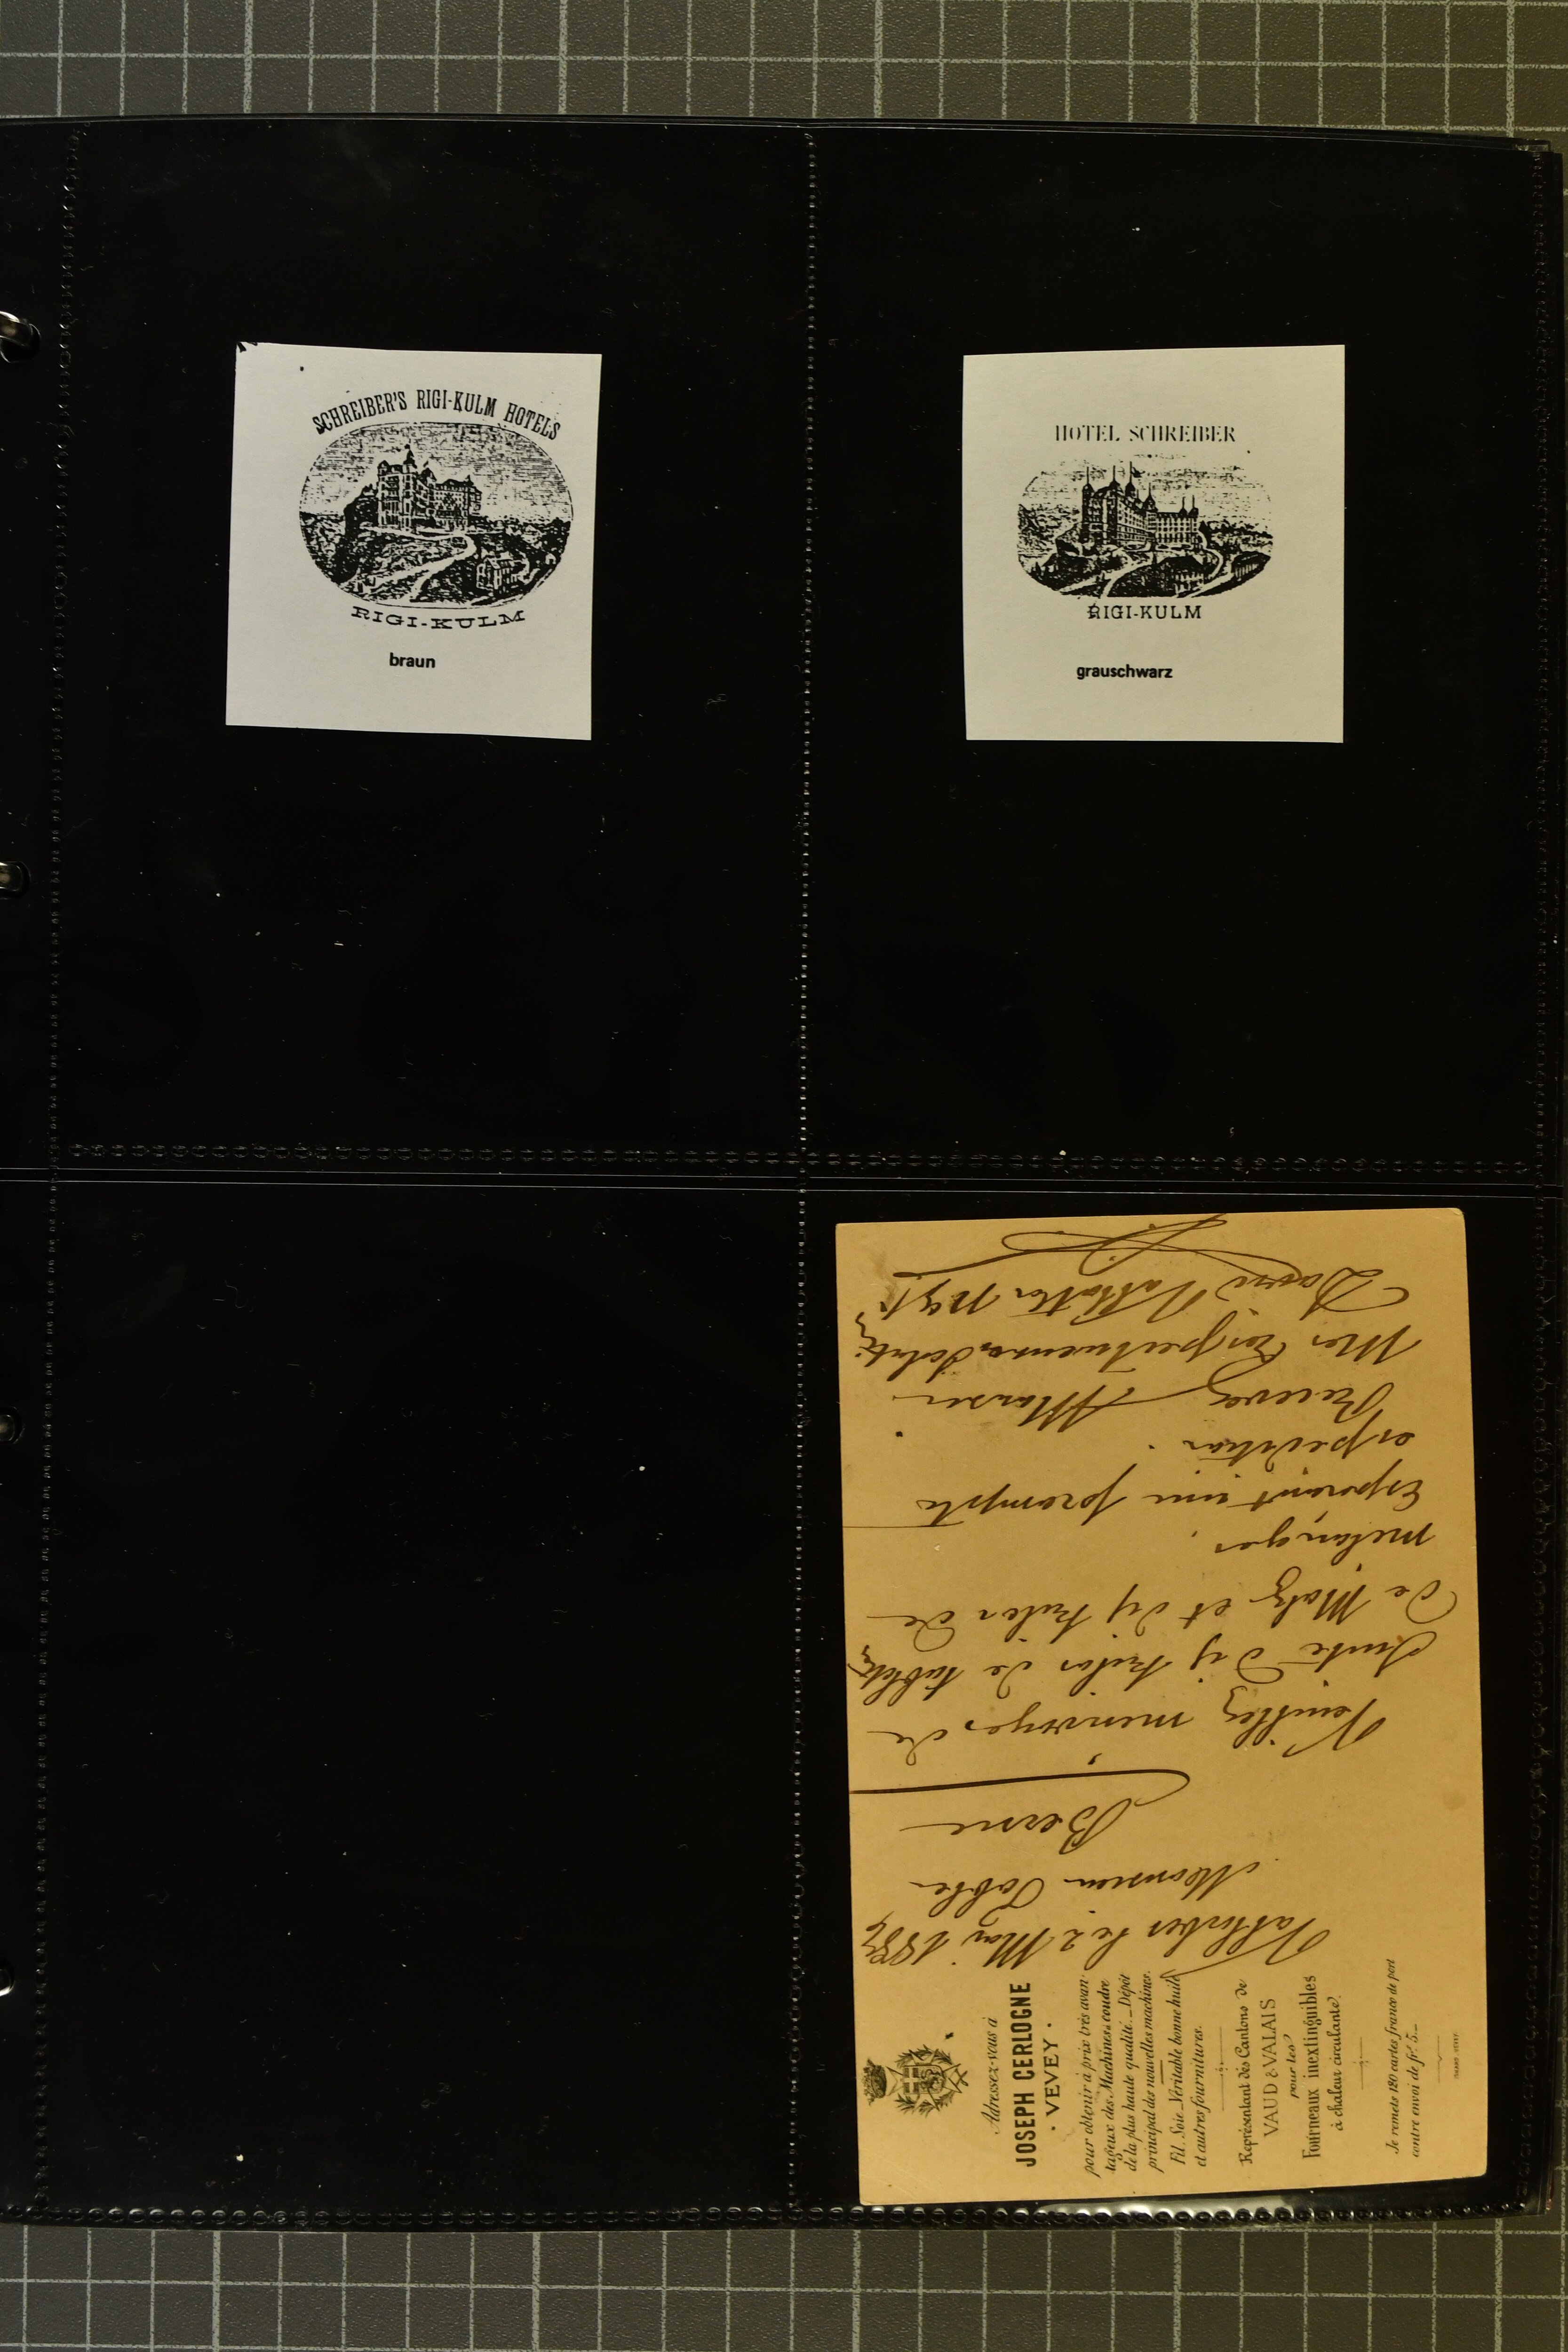 SCHREIBER'S RIGI-KULM HOTELS
RIGI-KULM
braun
HOTEL SCHREIBER
RIGI-KULM
grauschwarz
Adressez-vous à
JOSEPH CERLOGNE
· VEVEY ·
pour obtenir à prix très avan-
tageux des Machines à coudre
de la plus haute qualité. _ Dépôt
principal des nouvelles machines.
Fil. Soie. Véritable bonne huile
et autres fournitures.
Représentant des Cantons de
VAUD & VALAIS
pour les
Fourneaux inextinguibles
à chaleur circulante.
Je remets 120 cartes franco de port
contre envoi de fr. 5._
le 2 Mai
Monsieur Tobler
Berne
Veuillez m'envoyer de
suite dix kilos de
de et dix kilos de
melanges.
Esperant une prompte
expedition.
Recevez
Mes